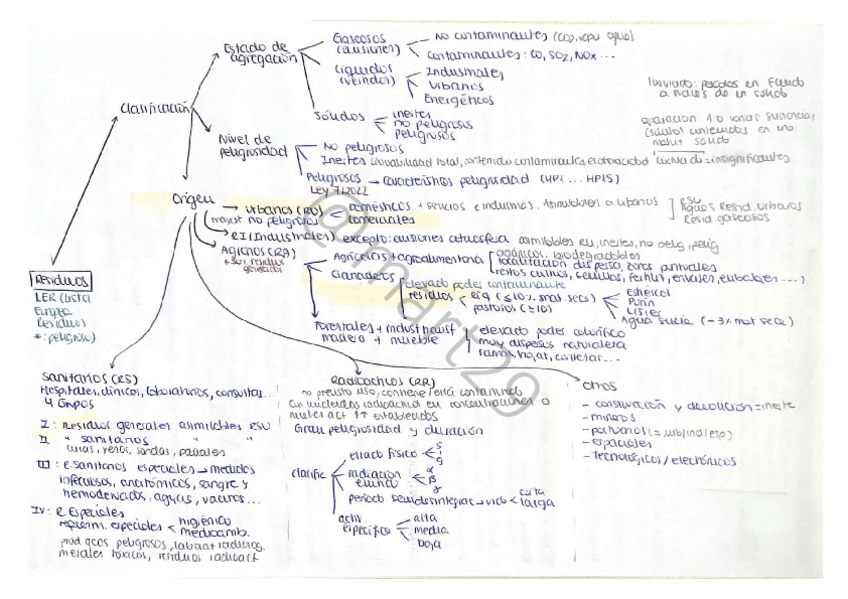 Estado de agregación
Gaseosos (emisiones)
No contaminantes (CO2, vapor agua)
Contaminantes: CO, SO2, NOx...
Líquidos (vertidos)
Industriales
Urbanos
Energéticos
Sólidos
inertes
no peligrosos
peligrosos
Clasificación
Nivel de peligrosidad
No peligrosos
Inertes lixiviabilidad total, contenido contaminantes
= insignificantes
Peligrosos → características peligrosidad (HP1 ... HP15)
Ley 7/2022
Lixiviado:
a través de un sólido
1 o varias sustancias
(soluto) contenidos en una
matriz sólido
Origen
Urbanos (RU)
mayor no peligrosos
domésticos + servicios e industrias. Asimilables a urbanos
comerciales
RSU
Aguas Resid urbanas
Resid gaseosos
RI (Industriales) excepto: emisiones atmosfera, asimilables RU, inertes, no pelig, pelig
Agrarios (RA)
Agrícolas + agroalimentaria
orgánicos, biodegradables
localización dispersa, otras puntuales
restos cultivos, cereales, fertiliz, envases, embalajes ...)
Ganaderos
elevado poder contaminante
residuos
líq (≤10% mat seca)
pastosos (≥10)
Estiércol
Purín
Lisier
Agua sucia (-3% mat seca)
Forestales + indust transf
madera + mueble
elevado poder calorífico
muy dispersos naturaleza
ramas, hojas, cortezas...
Residuos
LER (Lista
Europea
Residuos)
*: peligroso)
Sanitarios (RS)
Hospitales, clínicas, laboratorios, consultas...
4 Grupos
I: Residuos generales asimilables RSU
II " sanitarios "
curas, yesos, sondas, pañales
III: R. sanitarios especiales → medidas
infecciosos, anatómicos, sangre y
hemoderivados, agujas, vacunas...
IV: R Especiales
requerim. especiales
higiénico
medioamb.
metales tóxicos, residuos radioact
Radioactivos (RR)
no previsto uso, contiene/está contaminado
con nucleidos radioactivos en concentraciones o
niveles act ↑↑ establecidos
Gran peligrosidad y duración
clasific
estado físico
s
l
g
radiación emitida
α
β
γ
periodo semidesintegrac → vida
corta
larga
activ. específica
alta
media
baja
Otros
- construcción y demolición = inerte
- mineros
- portuarios (= urb/ind/esp)
- espaciales
- tecnológicos/electrónicos
@mart29